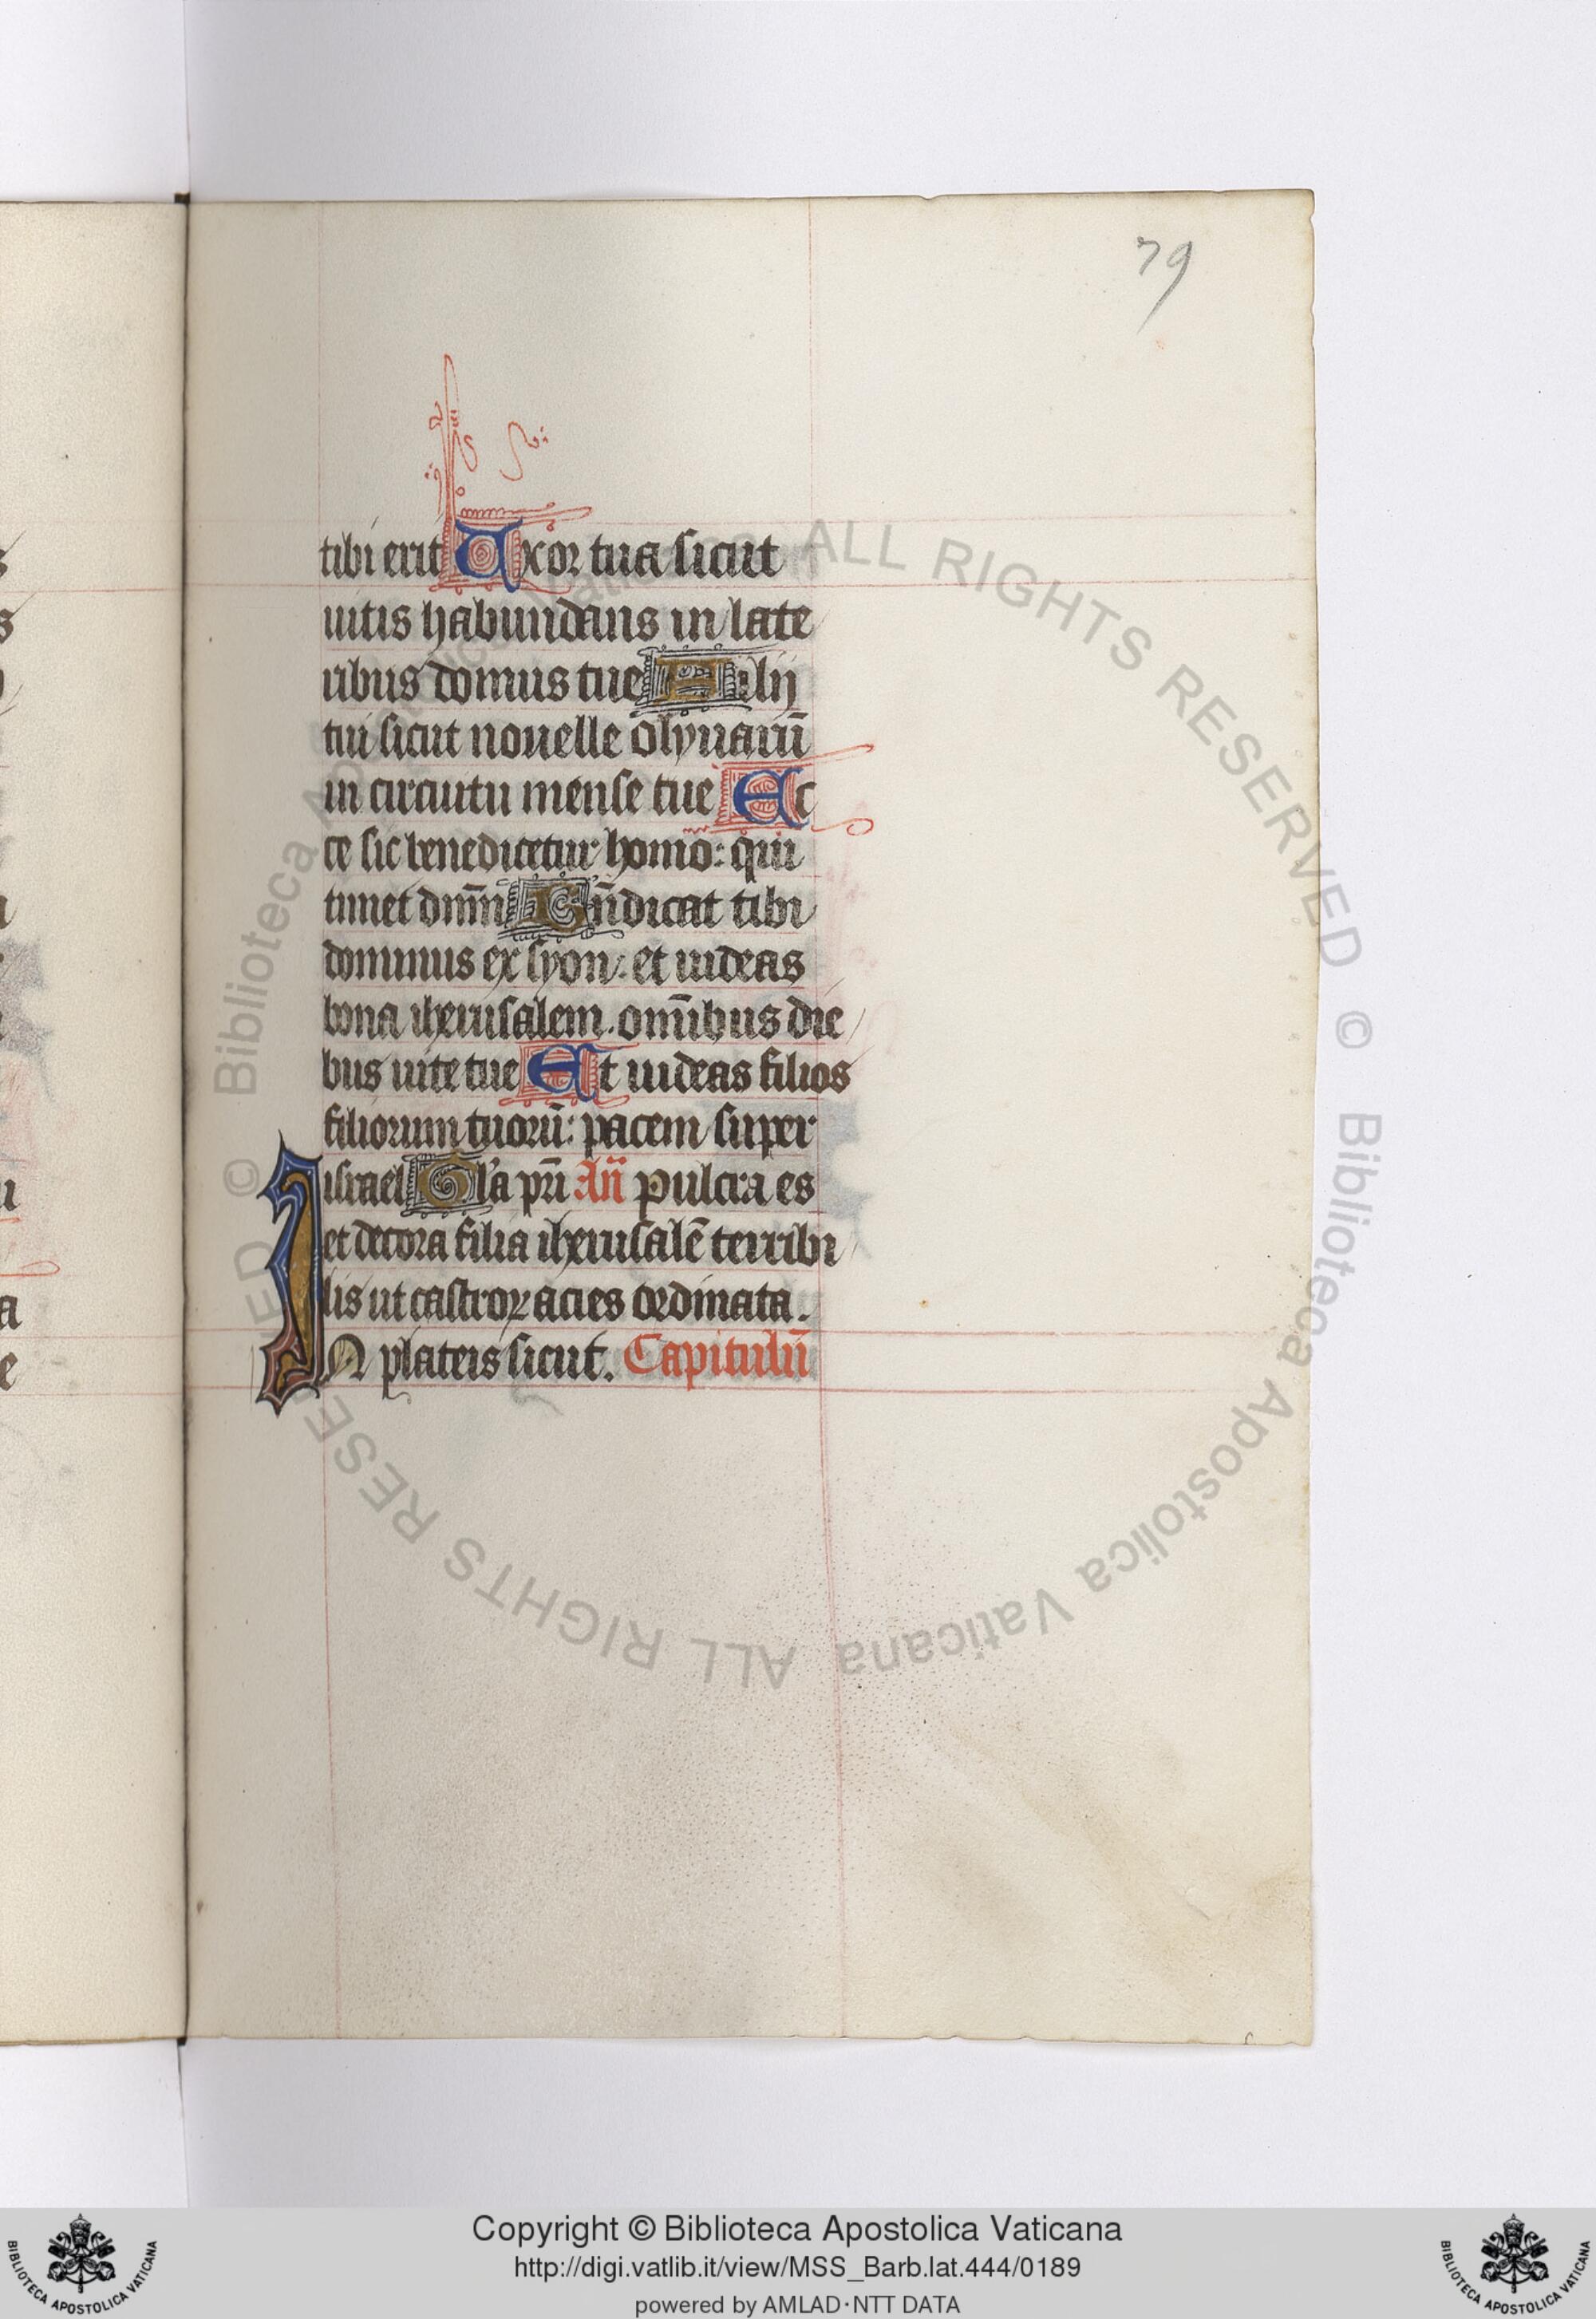 79
tibi erit Uxor tua sicut
uitis habundans in late
ribus domus tue Filij
tui sicut nouelle olyuarū
in circuitu mense tue Ec
ce sic benedicetur homo: qui
timet dnm̄ Bn̄dicat tibi
dominus ex syon: et uideas
bona iherusalem. omībus die
bus uite tue Et uideas filios
filiorum tuorū: pacem super
israel Gl'a pr̄i An̄ pulcra es
et decora filia iherusalē terribi
lis ut castroꝝ acies ordinata.
IN plateis sicut. Capitulū
© Biblioteca Apostolica Vaticana ALL RIGHTS RESERVED
© Biblioteca Apostolica Vaticana ALL RIGHTS RESERVED
Copyright © Biblioteca Apostolica Vaticana
http://digi.vatlib.it/view/MSS_Barb.lat.444/0189
powered by AMLAD·NTT DATA
BIBLIOTECA APOSTOLICA VATICANA
BIBLIOTECA APOSTOLICA VATICANA